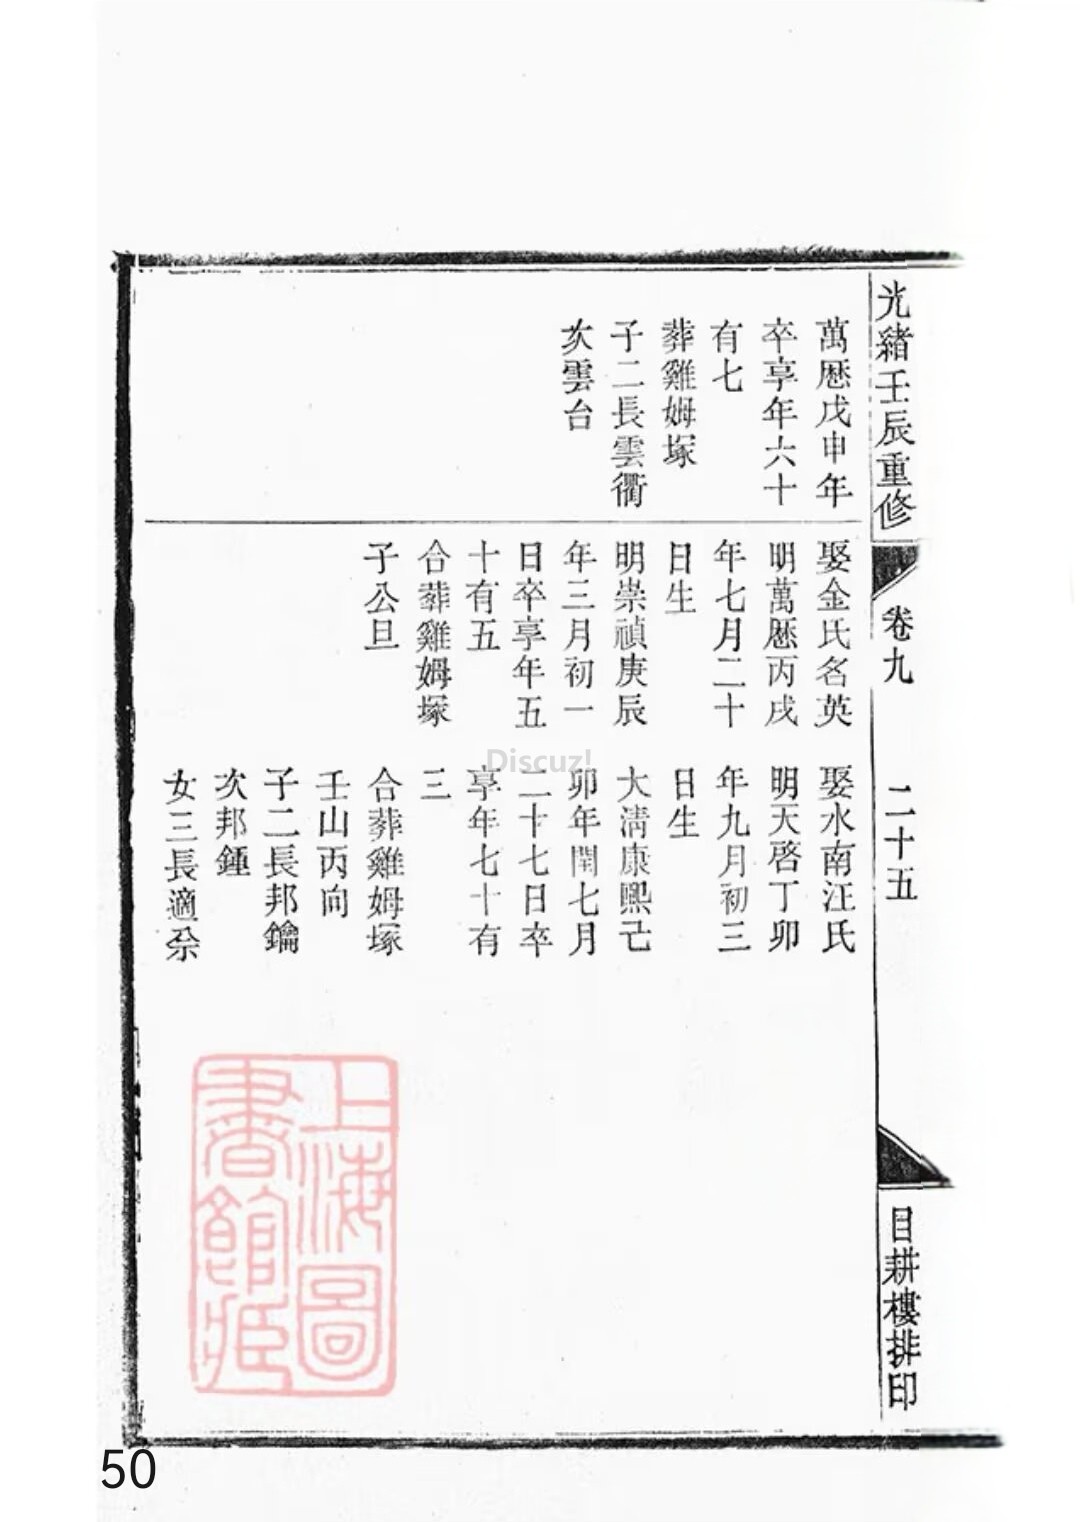 光緒壬辰重修
卷九
二十五
目耕樓排印
萬厯戊申年
卒享年六十
有七
葬雞姆塚
子二長雲衢
次雲台
娶金氏名英
明萬厯丙戌
年七月二十
日生
明崇禎庚辰
年三月初一
日卒享年五
十有五
合葬雞姆塚
子公旦
娶水南汪氏
明天啓丁卯
年九月初三
日生
大淸康熙己
卯年閏七月
二十七日卒
享年七十有
三
合葬雞姆塚
壬山丙向
子二長邦鑰
次邦鍾
女三長適佘
上海圖
書館藏
Discuz!
50